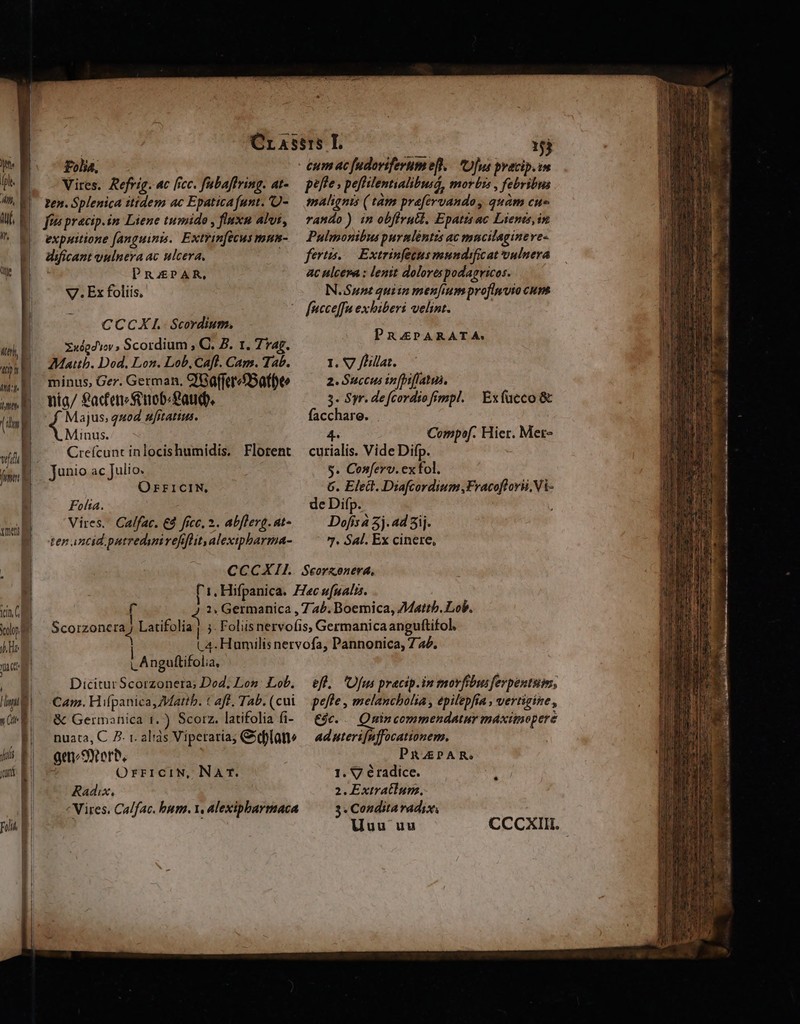 CLASSIS I. 153
Folia,
Vires. Refrig. ac ſicc. ſubaſtring. at-
ten. Splenica itidem ac Epatica ſunt. U-
ſus præcip. in Liene tumido, fluxu alvi,
expuitione ſanguinis. Extrinſecus mun-
dificant vulnera ac ulcera.
PRÆPAR.
▽. Ex foliis.
CCCXI. Scordium.
Σκόρδιον, Scordium, C. B. 1. Trag.
Matth. Dod. Lon. Lob. Caſt. Cam. Tab.
minus, Ger. German. Waſſer-Bathe-
nia/ Lachen-Knob-Lauch.
Majus, quod uſitatius.
Minus.
Creſcunt in locis humidis. Florent
Junio ac Julio.
OFFICIN.
Folia.
Vires. Calfac. & ſicc. 2. abſterg. at-
ten. incid. putredini reſiſtit, alexipharma-
cum ac ſudoriferum eſt. Uſus præcip. in
peſte, peſtilentialibusq; morbis, febribus
malignis (tàm præſervando, quàm cu-
rando) in obſtruct. Epatis ac Lienis, in
Pulmonibus purulentis ac mucilagine re-
fertis. Extrinſecus mundificat vulnera
ac ulcera: lenit dolores podagricos.
N. Sunt qui in menſium profluvio cum
ſucceſſu exhiberi velint.
PRÆPARATA.
1. ▽ ſtillat.
2. Succus inſpiſſatus.
3. Syr. de ſcordio ſimpl. Ex ſucco &
ſacchare.
4. Compoſ. Hier. Mer-
curialis. Vide Diſp.
5. Conſerv. ex fol.
6. Elect. Diaſcordium, Fracoſtorii, Vi-
de Diſp.
Doſis à ʒj. ad ʒij.
7. Sal. Ex cinere,
CCCXII. Scorzonera.
1. Hiſpanica. Hæc uſualis.
2. Germanica, Tab. Boemica, Matth. Lob.
Scorzonera Latifolia 3. Foliis nervoſis, Germanica anguſtifol.
4. Humilis nervoſa, Pannonica, Tab.
Anguſtifolia,
Dicitur Scorzonera; Dod. Lon. Lob.
Cam. Hiſpanica, Matth. Caſt. Tab. (cui
& Germanica 1.) Scorz. latifolia ſi-
nuata, C. B. 1. aliàs Viperaria, Schlan-
gen-Mord.
OFFICIN. NAT.
Radix.
Vires. Calfac. hum. 1. alexipharmaca
eſt. Uſus præcip. in morſibus ſerpentum,
peſte, melancholia, epilepſia, vertigine,
&c. Quin commendatur maximopere
ad uteri ſuffocationem.
PRÆPAR.
1. ▽ è radice.
2. Extractum.
3. Condita radix.
Uuu uu CCCXIII.